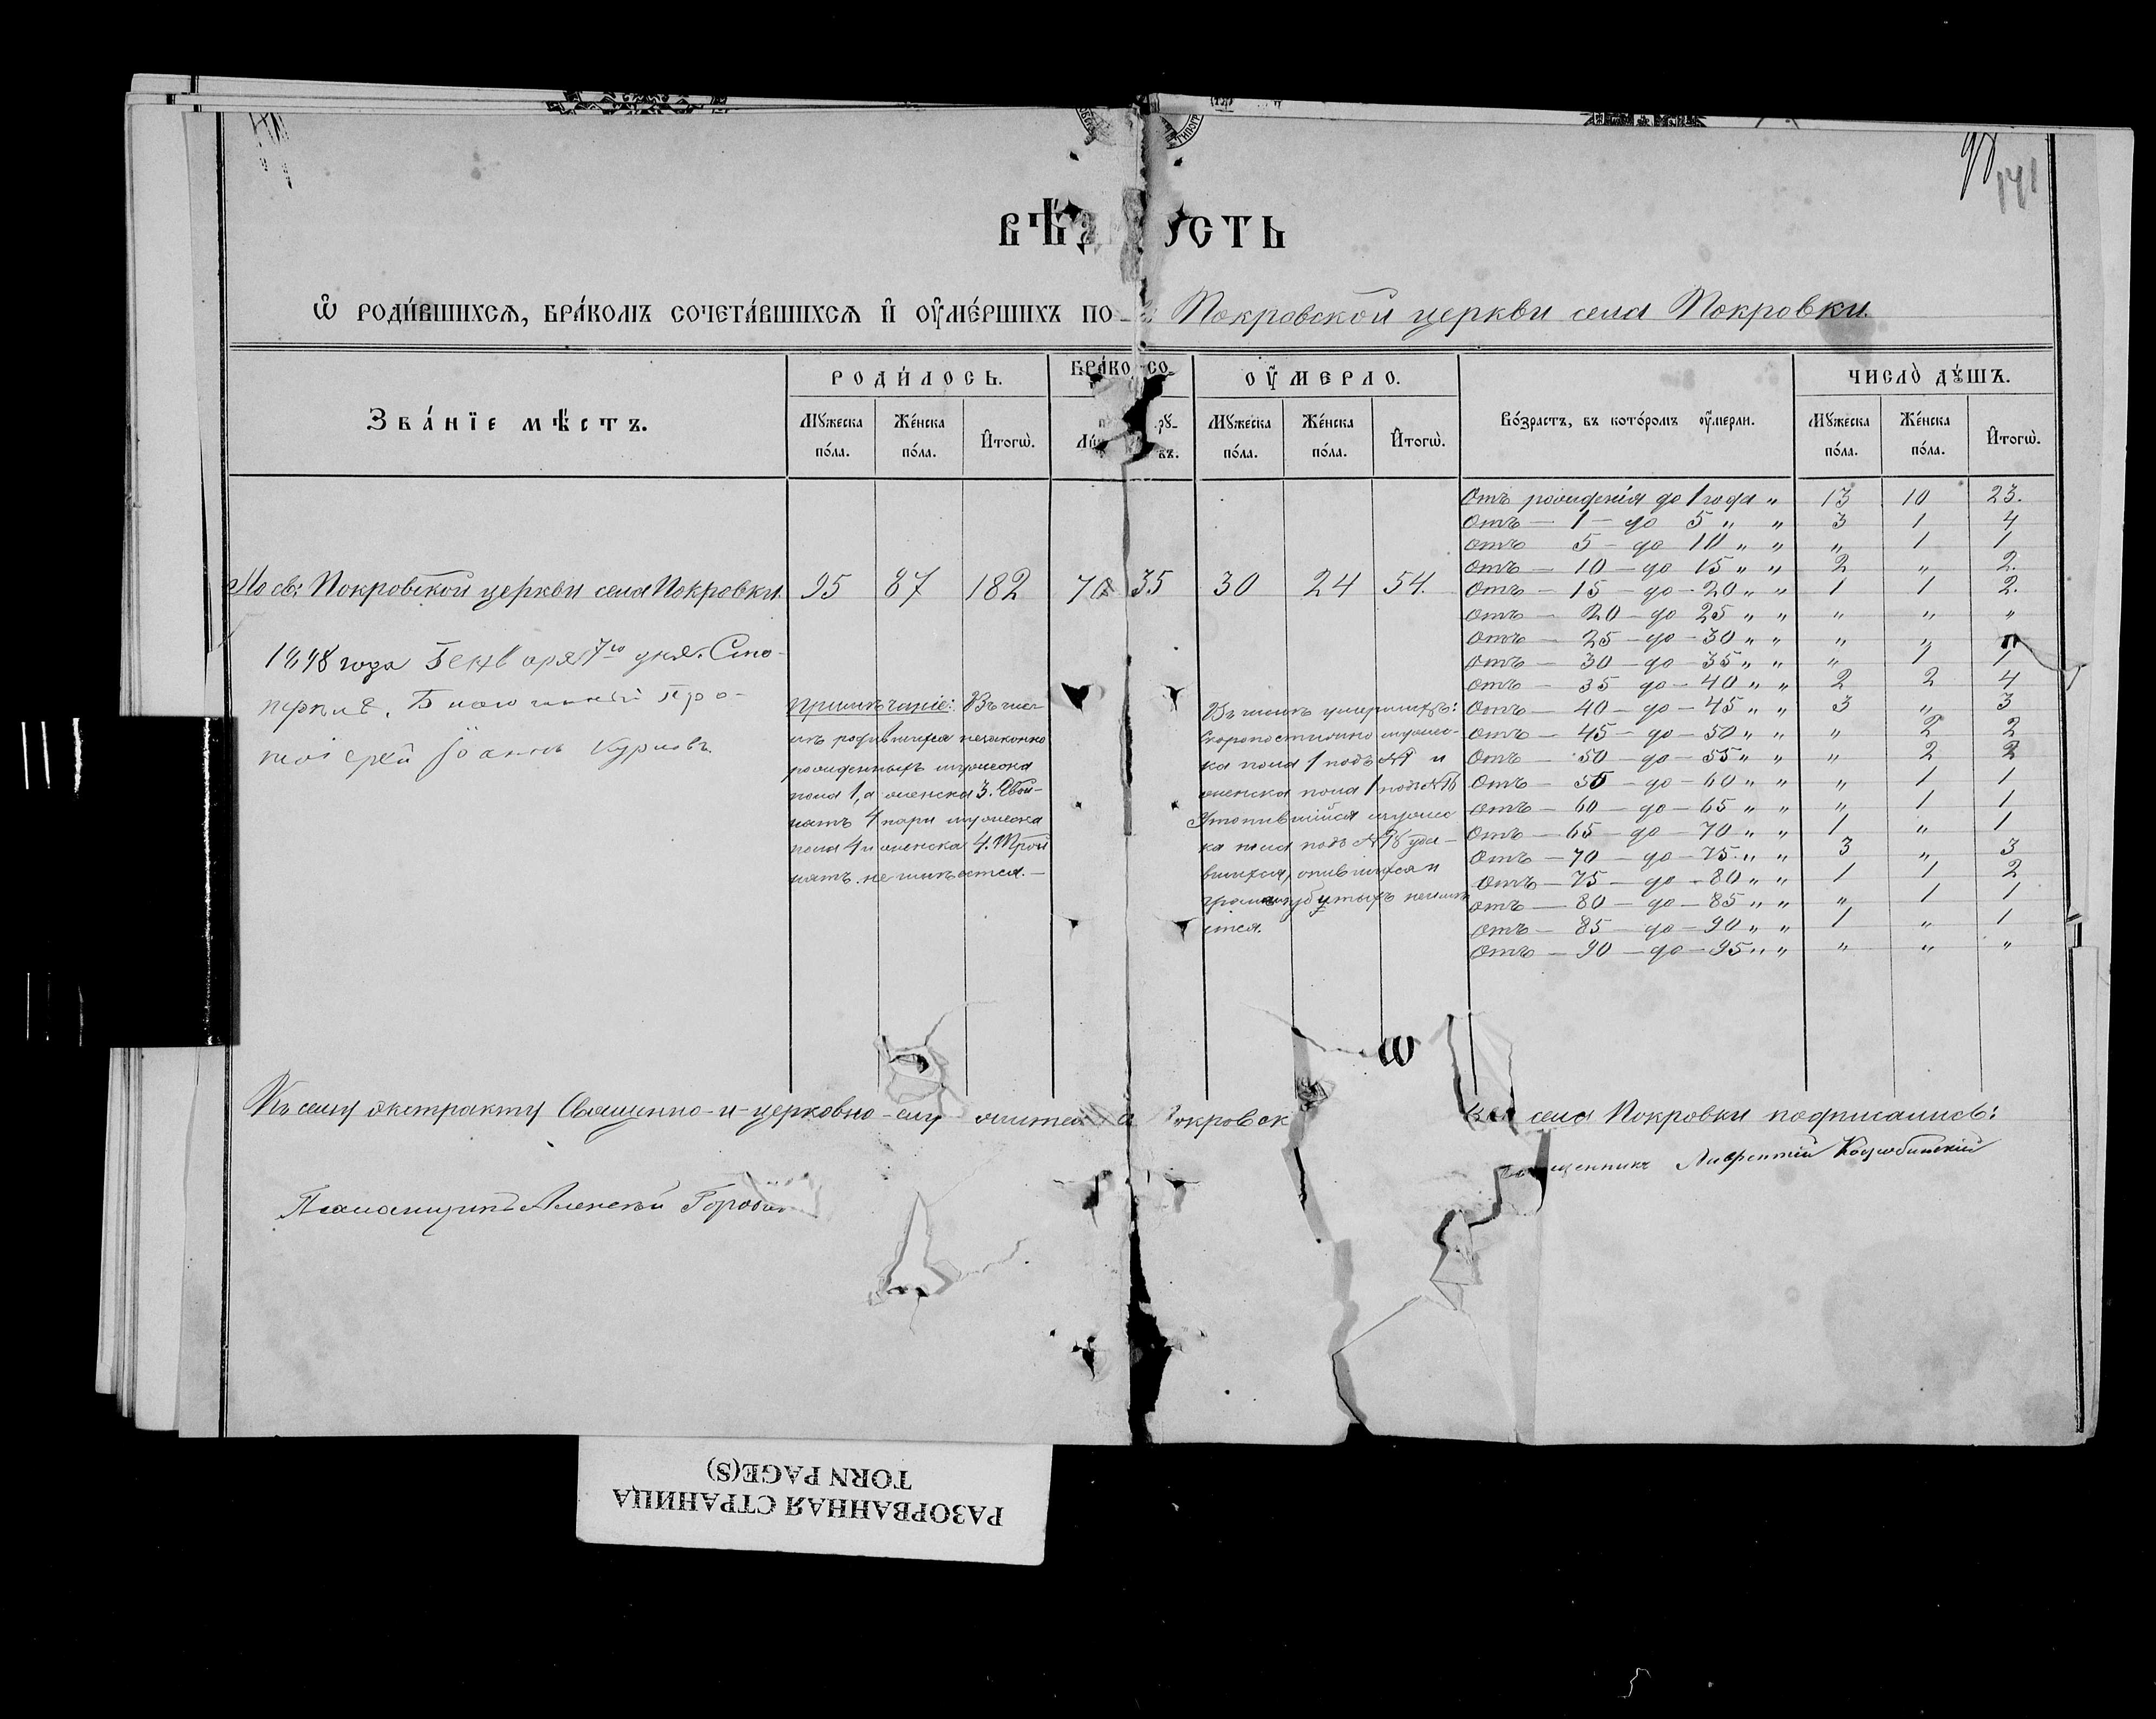 141
ВѢД ОСТЬ
Ѡ РОДИ́ВШИХСѦ, БРА́КОМЪ СОЧЕТА́ВШИХСѦ И҆ ОУ҆МЕ́РШИХЪ ПО Покровской церкви села Покровки.
Зва́нїе мѣ́стъ.
РОДИ́ЛОСЬ.
БРА́КО СО-
ОУ҆МЕРЛО.
Во́зрастъ, въ кото́ромъ оу҆мерли.
ЧИСЛО̀ ДꙊ́ШЪ.
Мꙋжеска по́ла.
Же́нска по́ла.
И҆тогѡ̀.
Мꙋжеска по́ла.
Же́нска по́ла.
И҆тогѡ̀.
Мꙋжеска по́ла.
Же́нска по́ла.
И҆тогѡ̀.
По св: Покровской церкви села Покровки.
95 87 182 70 35 30 24 54.
Отъ рожденія до 1 года „ 13 10 23.
Отъ — 1 — до 5 „ „ 3 1 4
Отъ 5 — до 10 „ „ „ 1 1
Отъ — 10 — до 15 „ „ 2 „ 2.
Отъ — 15 — до — 20 „ „ 1 1 2.
Отъ — 20 — до 25 „ „ „ „ „
Отъ — 25 — до — 30 „ „ „ „
Отъ — 30 — до — 35 „ „ „ 1 1
Отъ — 35 до — 40 „ „ 2 2 4
Отъ — 40 — до — 45 „ „ 3 „ 3
Отъ — 45 — до — 50 „ „ „ 2 2
Отъ — 50 — до — 55 „ „ „ 2 2
Отъ — 55 — до — 60 „ „ „ 1 1
Отъ — 60 — до — 65 „ „ „ 1 1
Отъ — 65 — до — 70 „ „ 1 „ 1
Отъ — 70 — до — 75 „ „ 3 „ 3
Отъ — 75 — до — 80 „ „ 1 1 2
Отъ — 80 — до — 85 „ „ „ 1 1
Отъ — 85 — до — 90 „ „ 1 „ 1
Отъ — 90 — до — 95 „ „ „ „ „
1898 года Генваря 7го дня. Смо-
Благочинный Про-
тоіерей Іоаннъ
Примѣчаніе: Въ чис-
лѣ родившихся незаконно
рожденныхъ мужеска
пола 1, а женска 3. Двой-
натъ 4 пары мужеска
пола 4 и женска 4. Трой
натъ не имѣется. —
Въ числѣ умершихъ:
Скоропостижно мужес-
ка пола 1 подъ и
женска пола 1 подъ
Утопившійся мужес
ка пола подъ уда-
вшихся, опившихся и
громомъ убитыхъ неимѣ
ется.
Къ сему экстракту Священно-и-церковно-слу жители Покровск села Покровки подписались:
Священникъ Лаврентій Коцюбинскій
Псаломщикъ Алексѣй
РАЗОРВАННАЯ СТРАНИЦА
TORN PAGE(S)